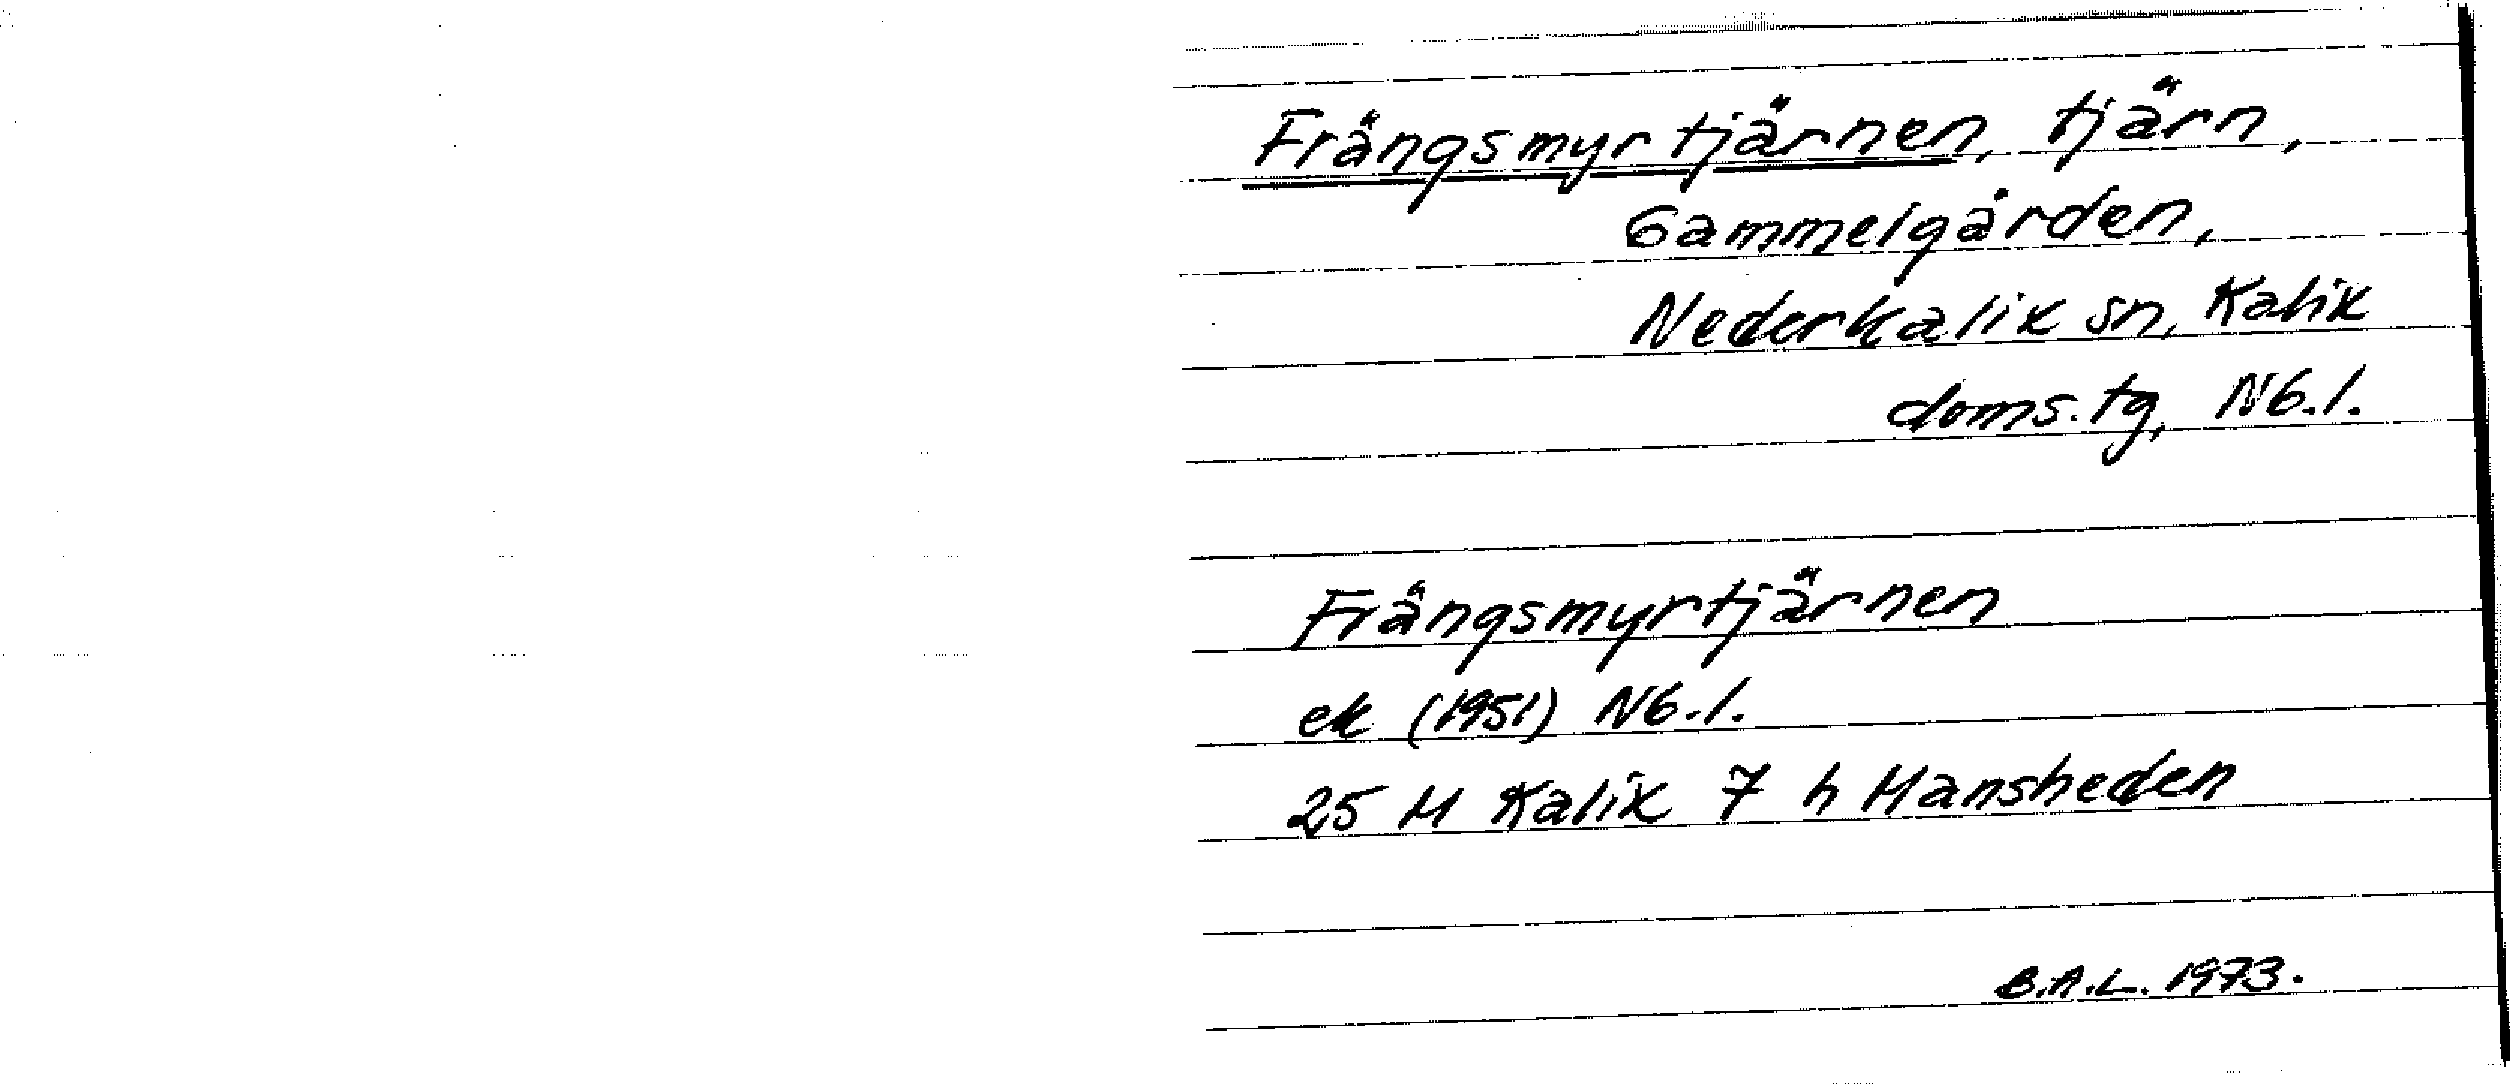 Frängsmyrtjärnen, tjärn,
Gammelgården,
Nederkalix sn, Kalix
doms.tg, NG.l.
Frängsmyrtjärnen
ek (1951) NG.l.
25 M Kalix 7 h Mansheden
B.A.L. 1973.